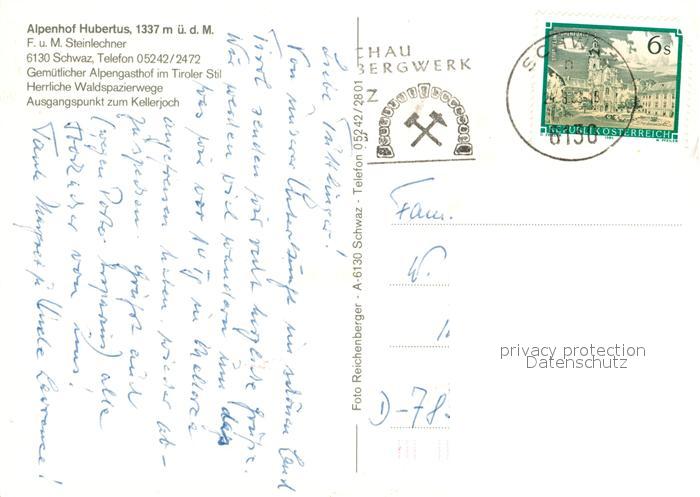 Alpenhof Hubertus, 1337 m ü. d. M.
F. u. M. Steinlechner
6130 Schwaz, Telefon 05242/2472
Gemütlicher Alpengasthof im Tiroler Stil
Herrliche Waldspazierwege
Ausgangspunkt zum Kellerjoch
Liebe
Von unserer im schönen Land
Tirol senden wir recht herzliche Grüße.
Wir werden viel wandern um das
was wir vor 14 Tg in
angefressen haben, wieder ab-
zuspecken. Grüßt auch
(wegen Porto) alle
von uns.
Tante Margret & Onkel
Foto Reichenberger - A-6130 Schwaz - Telefon 05242/2801
CHAU
BERGWERK
Z
SCHWAZ
6130
6s
REPUBLIK ÖSTERREICH
Fam.
W.
D-78
privacy protection
Datenschutz